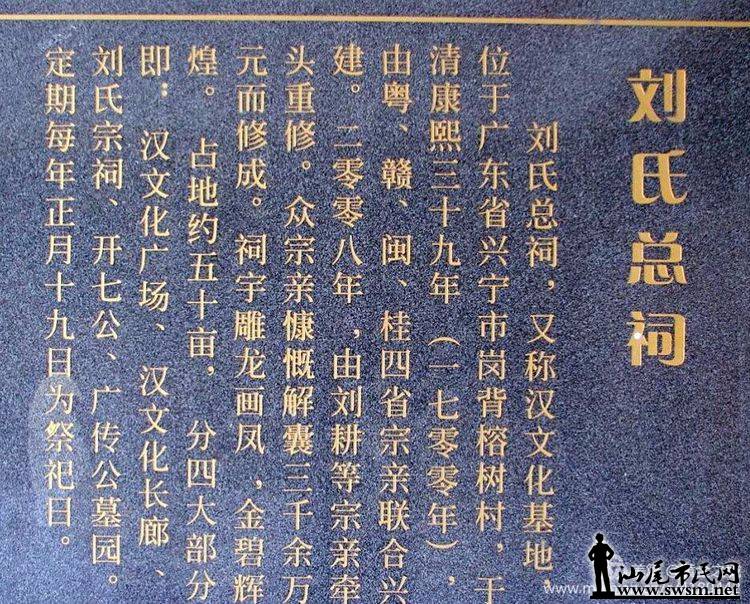 刘氏总祠
刘氏总祠，又称汉文化基地，
位于广东省兴宁市岗背榕树村，于
清康熙三十九年（一七零零年），
由粤、赣、闽、桂四省宗亲联合兴
建。二零零八年，由刘耕等宗亲牵
头重修。众宗亲慷慨解囊三千余万
元而修成。祠宇雕龙画凤，金碧辉
煌。占地约五十亩，分四大部分
即：汉文化广场、汉文化长廊、
刘氏宗祠、开七公、广传公墓园。
定期每年正月十九日为祭祀日。
汕尾市民网
www.swsm.net